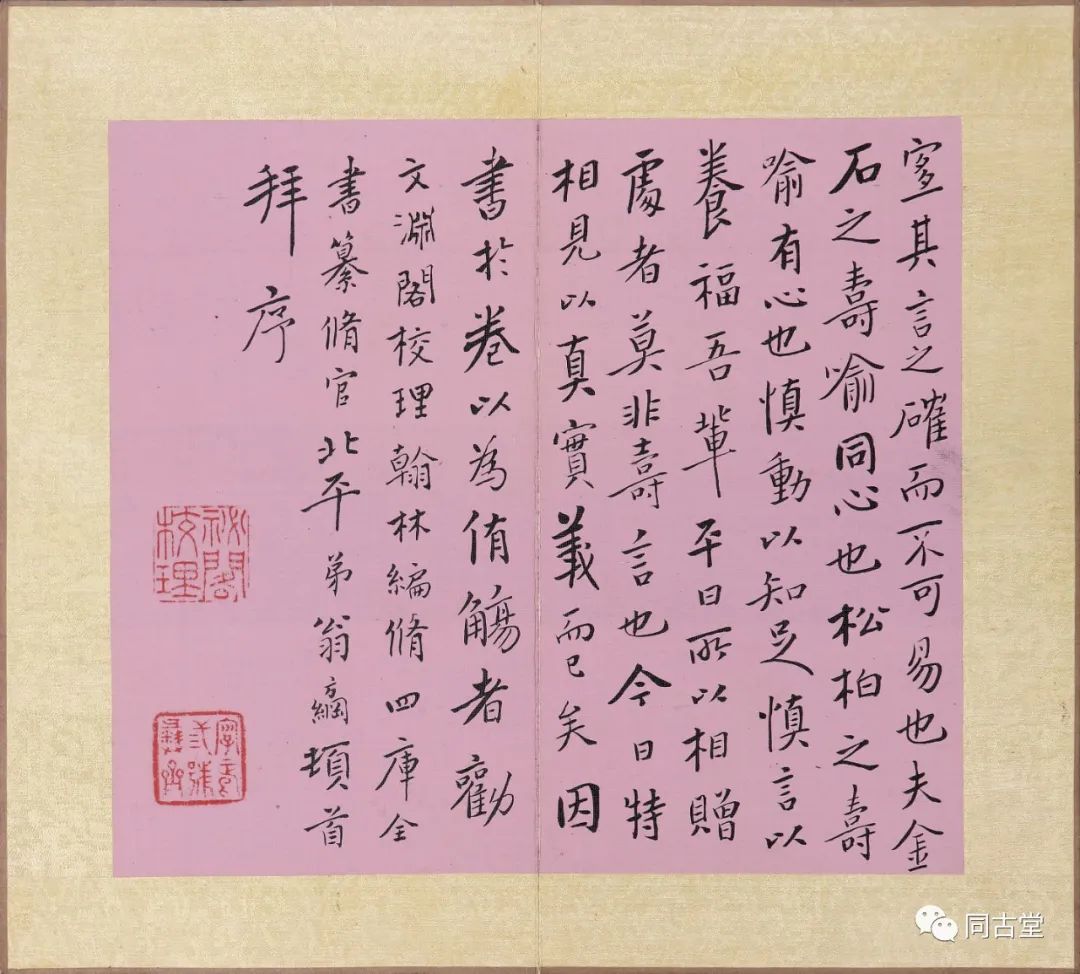 宜其言之確而不可易也夫金
石之壽喻同心也松柏之壽
喻有心也慎動以知足慎言以
養福吾輩平日所以相贈
處者莫非壽言也今日特
相見以真實義而已矣因
書於卷以為侑觴者勸
文淵閣校理翰林編脩四庫全
書纂脩官北平弟翁方綱頓首
拜序
祕閣
校理
同古堂